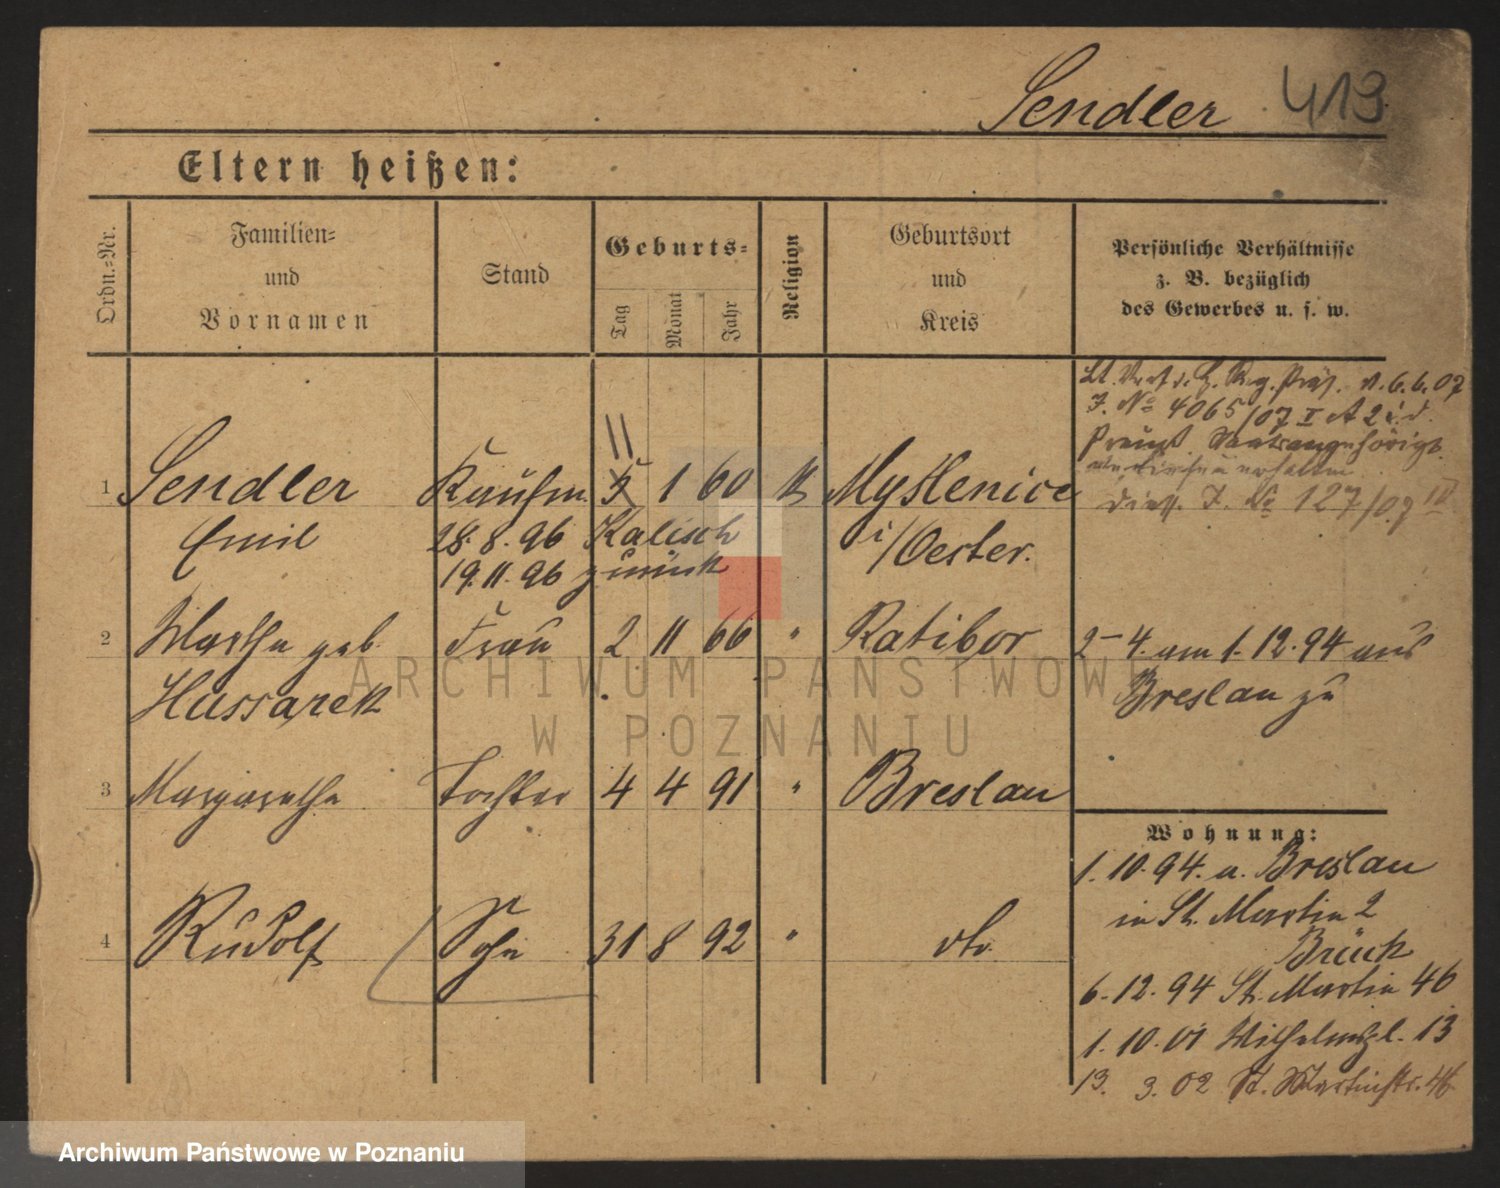 Sendler 419.
Eltern heißen:
Ordn.=Nr.
Familien=
und
Vornamen
Stand
Geburts=
Tag
Monat
Jahr
Religion
Geburtsort
und
Kreis
Persönliche Verhältnisse
z. B. bezüglich
des Gewerbes u. s. w.
Lt. Verf. d. H. Reg. Präs. v. 6.6.07
J. No 4065/07 I A 2 i. d.
Preuß. Staatsangehörigk.
erhalten
J. No 127/07 II
11
1 Sendler Kaufm. 5 1 60 k Myslenice
Emil 28.8.96 Kalisch i/Oester.
19.11.96 zurück
2 Martha geb. Frau 2 11 66 " Ratibor 2-4. am 1.12.94 aus
Hussarek Breslau zu
3 Margarethe Tochter 4 4 91 " Breslau
4 Rudolf Sohn 31 8 92 " dto.
Wohnung:
1.10.94. a. Breslau
in St. Martin 2
Brück
6.12.94 St. Martin 46
1.10.01 Wilhelmspl. 13
13. 3.02 St. Martinstr. 46
ARCHIWUM PAŃSTWOWE
W POZNANIU
Archiwum Państwowe w Poznaniu